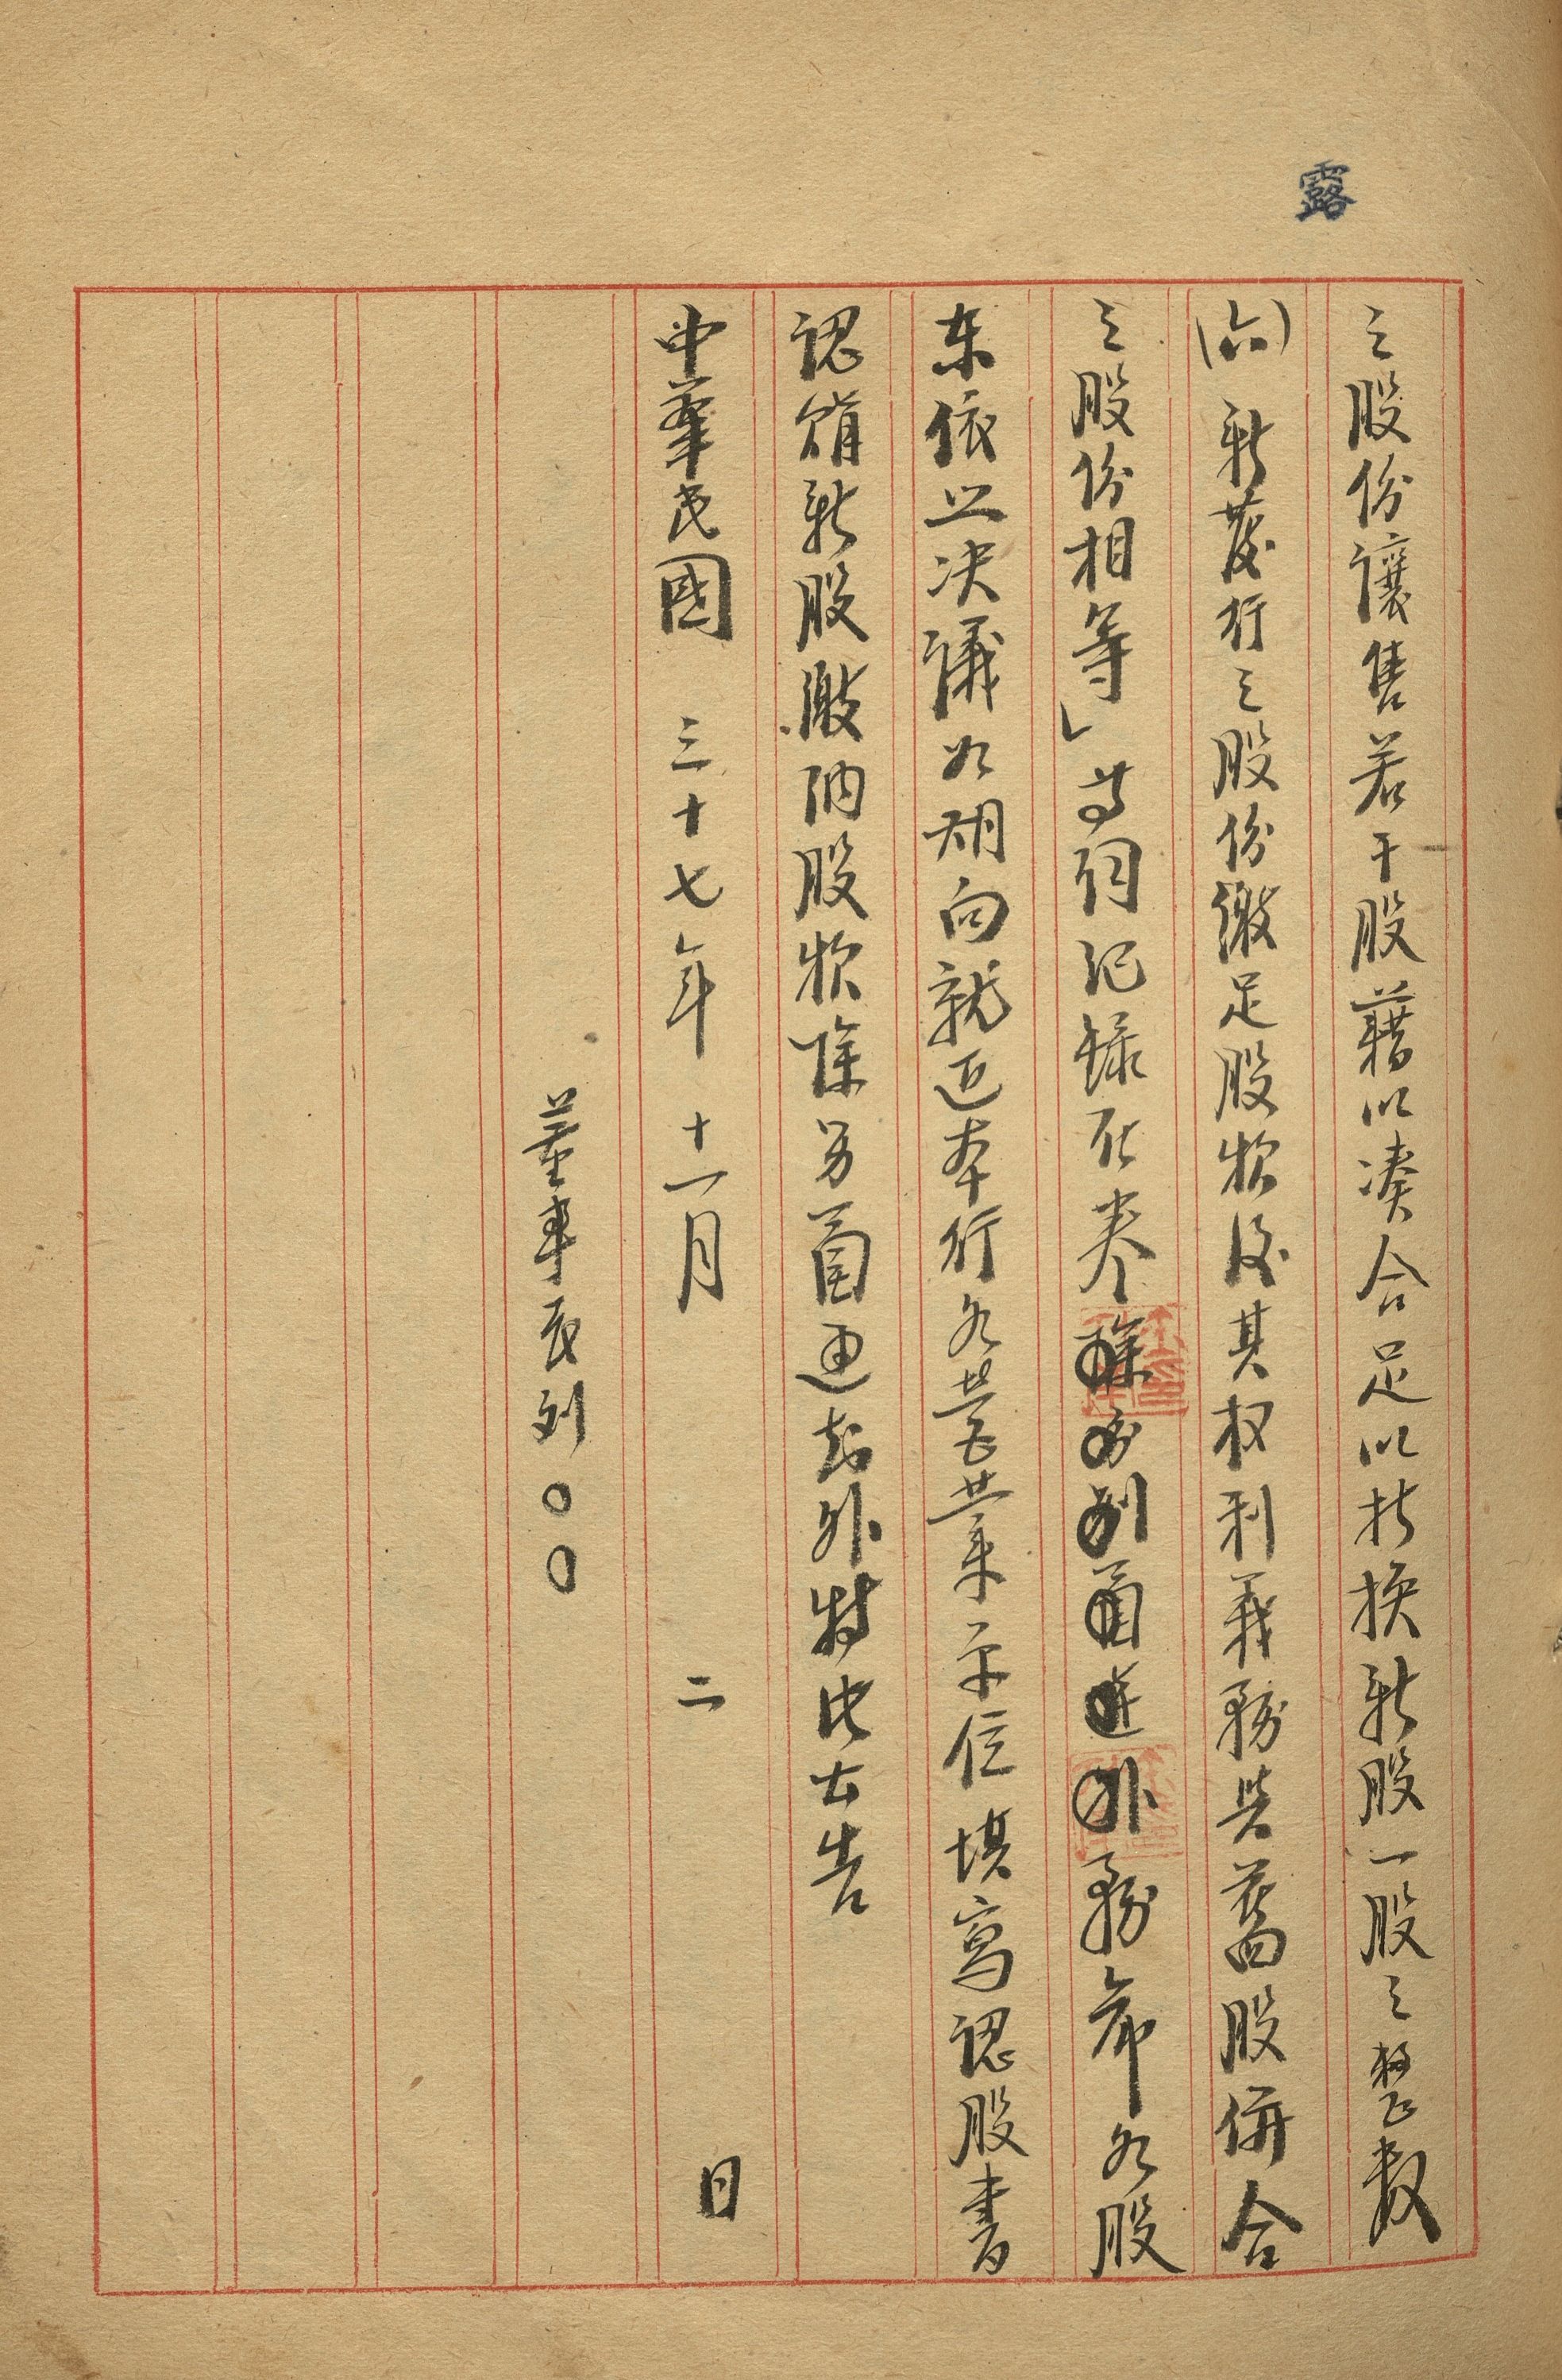 露
之股份讓售若干股藉以湊合足以折換新股一股之整數
(六)新發行之股份繳足股款後其权利義務與舊股併合
之股份相等」等詞紀錄在卷除分別函达外務希各股
東依照決議如期向就近本行各營業單位填寫認股書
認購新股繳納股款除另函通知外特此公告
中華民國 三十七年 十一月 二 日
董事長刘〇〇